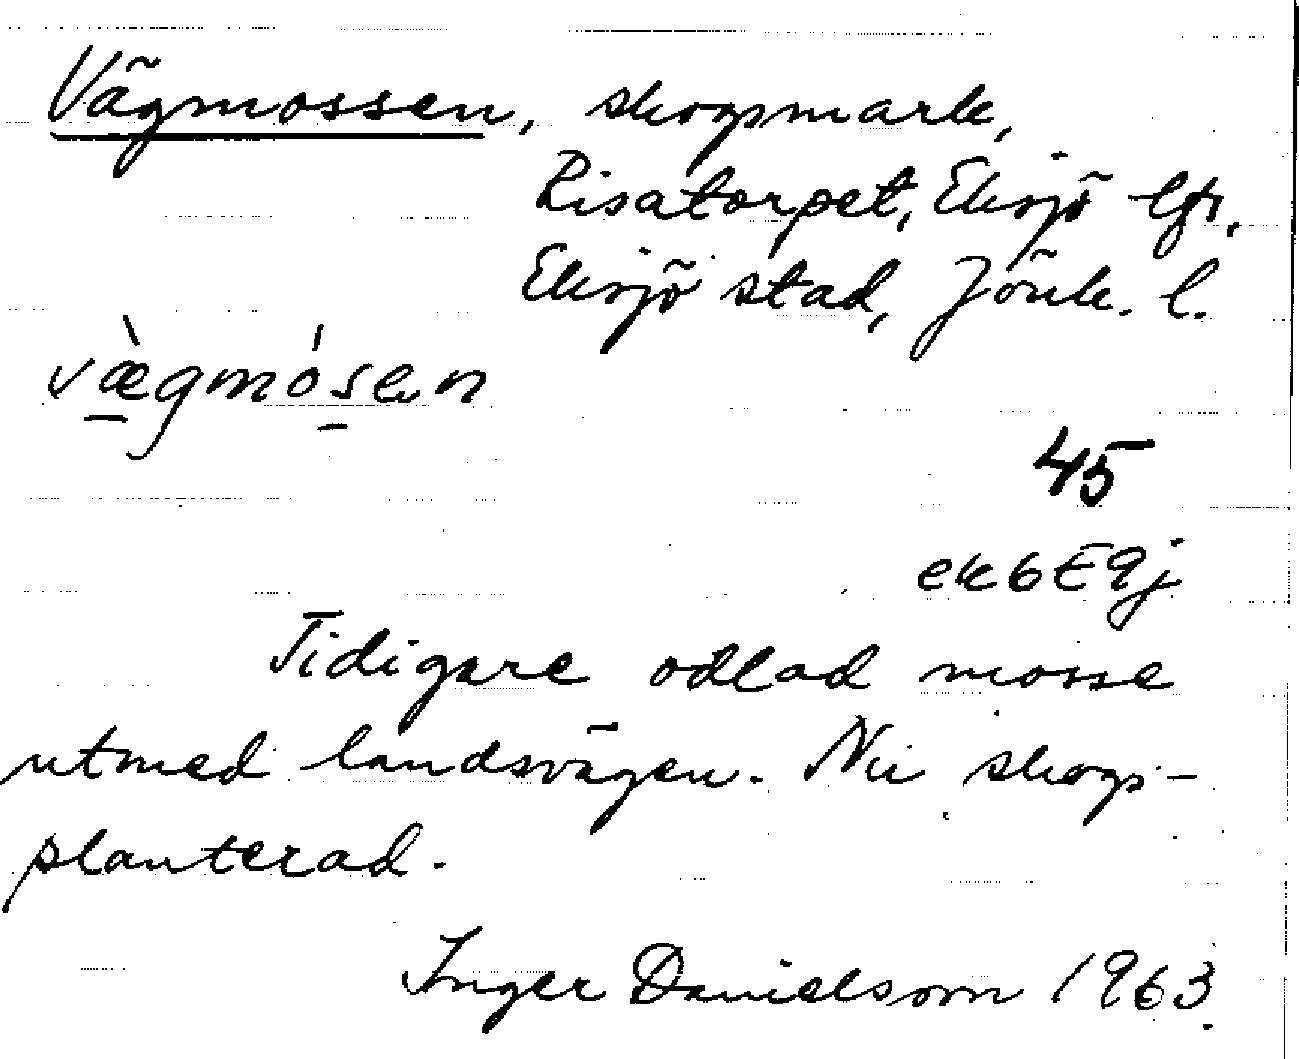 Vägmossen, skogsmark,
Risatorpet, Eksjö lfs,
Eksjö stad, Jönk. l.
væ̀gmósen
45
ek 6E9j
Tidigare odlad mosse
utmed landsvägen. Nu skogs-
planterad.
Inger Danielsson 1963